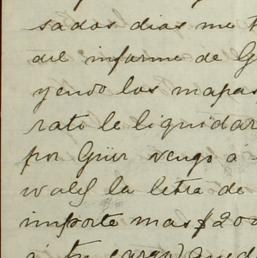 sados dias me
del informe de G
yendo los mapas
rato le liquidar
por Güir vengo á
la letra de
importe mas $200